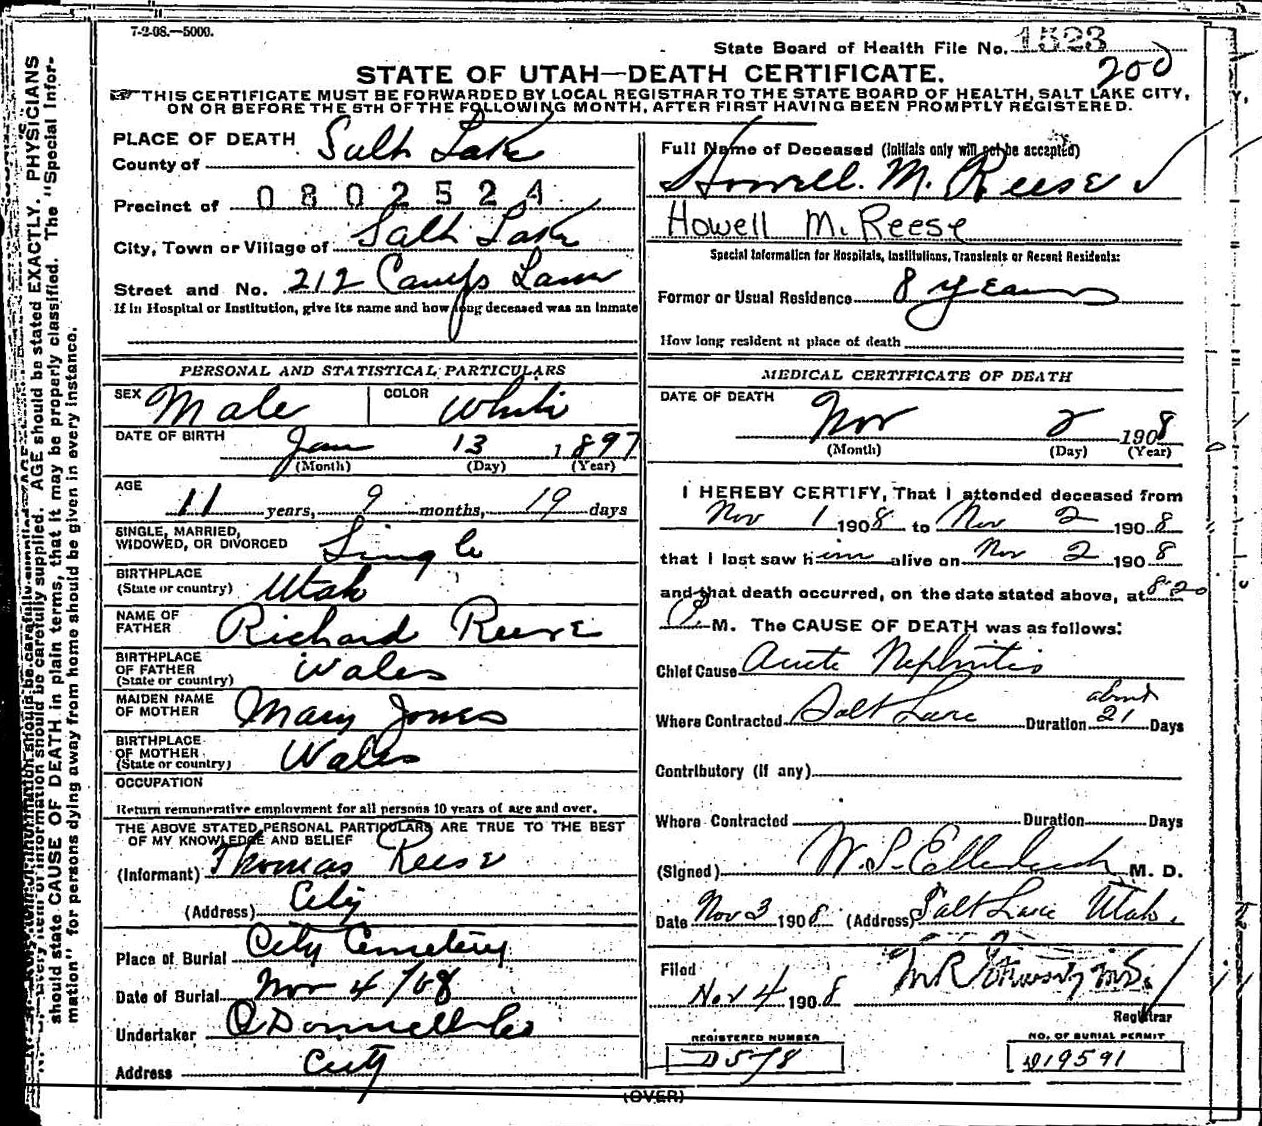 7-2-08.—5000.
State Board of Health File No. 1523
200
STATE OF UTAH—DEATH CERTIFICATE.
THIS CERTIFICATE MUST BE FORWARDED BY LOCAL REGISTRAR TO THE STATE BOARD OF HEALTH, SALT LAKE CITY,
ON OR BEFORE THE 5TH OF THE FOLLOWING MONTH, AFTER FIRST HAVING BEEN PROMPTLY REGISTERED.
PLACE OF DEATH
County of Salt Lake
Precinct of 0802524
City, Town or Village of Salt Lake
Street and No. 212
If in Hospital or Institution, give its name and how long deceased was an inmate
Full Name of Deceased (Initials only will not be accepted)
Howell. M. Reese
Howell M. Reese
Special Information for Hospitals, Institutions, Transients or Recent Residents:
Former or Usual Residence 8 years
How long resident at place of death
PERSONAL AND STATISTICAL PARTICULARS
SEX Male COLOR White
DATE OF BIRTH Jan 13 1897
(Month) (Day) (Year)
AGE
11 years, 9 months, 19 days
SINGLE, MARRIED,
WIDOWED, OR DIVORCED Single
BIRTHPLACE
(State or country) Utah
NAME OF
FATHER Richard Reese
BIRTHPLACE
OF FATHER
(State or country) Wales
MAIDEN NAME
OF MOTHER Mary Jones
BIRTHPLACE
OF MOTHER
(State or country) Wales
OCCUPATION
Return remunerative employment for all persons 10 years of age and over.
THE ABOVE STATED PERSONAL PARTICULARS ARE TRUE TO THE BEST
OF MY KNOWLEDGE AND BELIEF
(Informant) Thomas Reese
(Address) City
Place of Burial City Cemetery
Date of Burial Nov 4/08
Undertaker O'Donnell & Co
Address City
MEDICAL CERTIFICATE OF DEATH
DATE OF DEATH
Nov 2 1908
(Month) (Day) (Year)
I HEREBY CERTIFY, That I attended deceased from
Nov 1 1908 to Nov 2 1908
that I last saw him alive on Nov 2 1908
and that death occurred, on the date stated above, at 8:20
P. M. The CAUSE OF DEATH was as follows:
Chief Cause Acute Nephritis
Where Contracted Salt Lake Duration about 21 Days
Contributory (if any)
Where Contracted Duration Days
(Signed) W. S. Ellerbeck M. D.
Date Nov 3 1908 (Address) Salt Lake Utah.
Filed
Nov 4 1908
Registrar
REGISTERED NUMBER
D578
NO. OF BURIAL PERMIT
D19591
(OVER)
should be carefully supplied. AGE should be stated EXACTLY. PHYSICIANS
should state CAUSE OF DEATH in plain terms, that it may be properly classified. The "Special Infor-
mation" for persons dying away from home should be given in every instance.